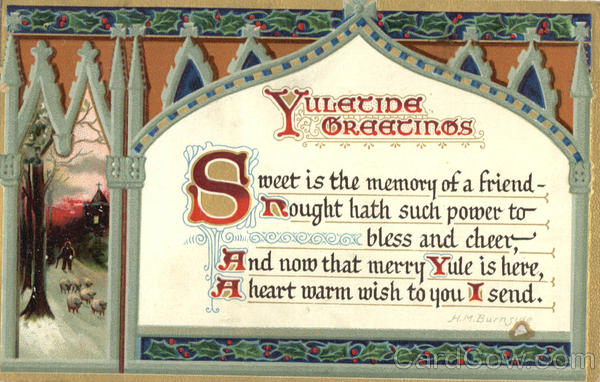 YULETIDE
GREETINGS
Sweet is the memory of a friend-
Nought hath such power to
bless and cheer,
And now that merry Yule is here,
A heart warm wish to you I send.
H.M. Burnside
CardCow.com